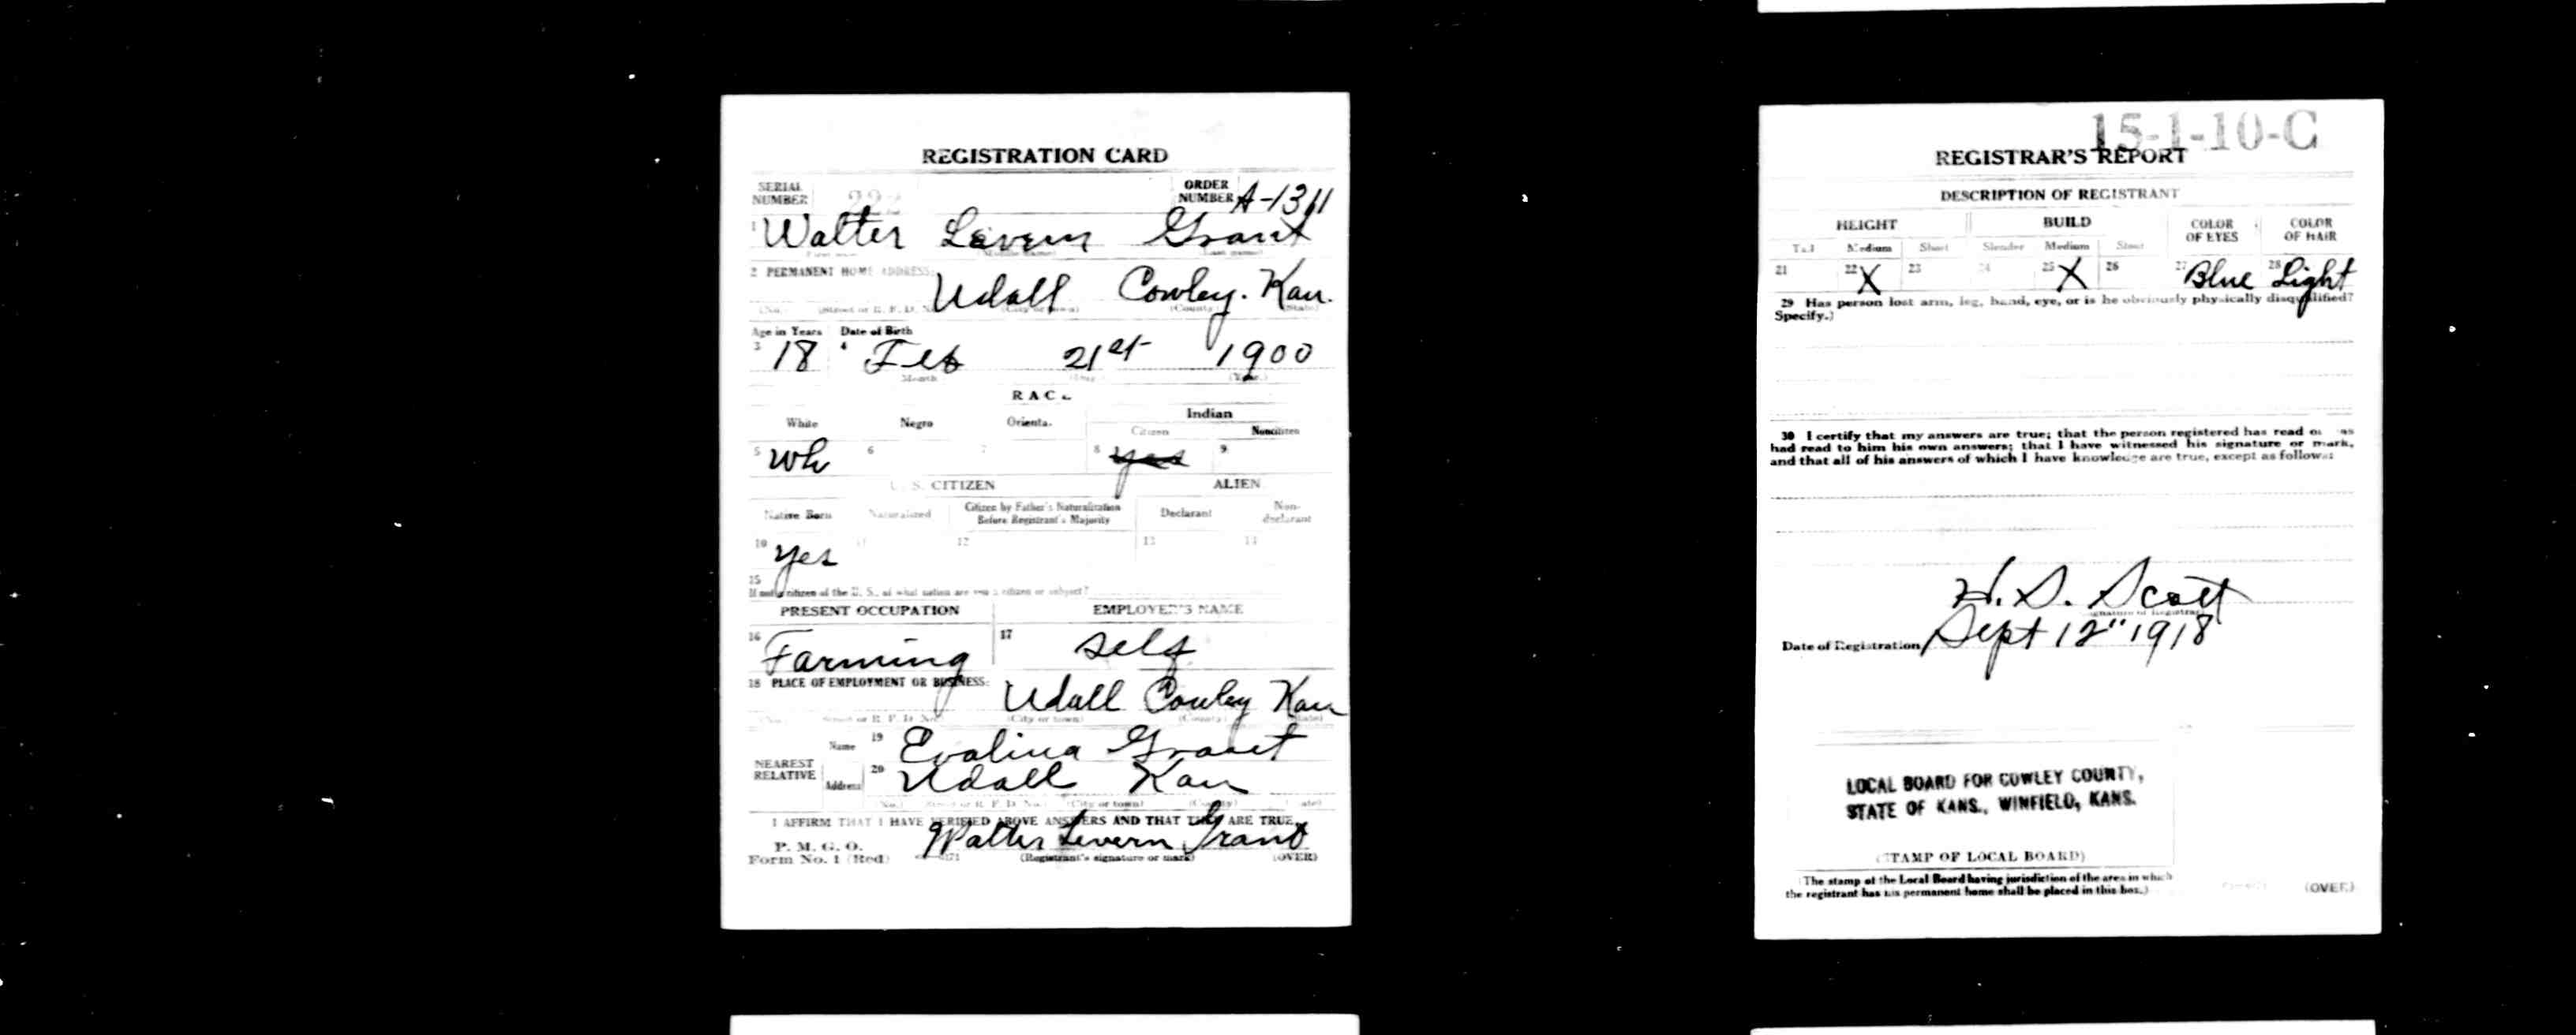 REGISTRATION CARD
SERIAL NUMBER 292 ORDER NUMBER A-1311
1 Walter Levern Grant
(Middle name) (Last name)
2 PERMANENT HOME ADDRESS:
Udall Cowley. Kan.
(No.) (Street or R. F. D. No.) (City or town) (County) (State)
Age in Years Date of Birth
3 18 4 Feb 21st 1900
Month (Day.) (Year.)
RACE
White Negro Oriental Indian
Citizen Noncitizen
5 Wh 6 7 8 yes 9
U. S. CITIZEN ALIEN
Native Born Naturalized Citizen by Father's Naturalization Before Registrant's Majority Declarant Non-declarant
10 yes 11 12 13 14
15
If not a citizen of the U. S., of what nation are you a citizen or subject?
PRESENT OCCUPATION EMPLOYER'S NAME
16 Farming 17 self
18 PLACE OF EMPLOYMENT OR BUSINESS:
Udall Cowley Kan
(No.) (Street or R. F. D. No.) (City or town) (County) (State)
NEAREST RELATIVE
Name 19 Evalina Grant
Address 20 Udall Kan
(No.) (Street or R. F. D. No.) (City or town) (County) (State)
I AFFIRM THAT I HAVE VERIFIED ABOVE ANSWERS AND THAT THEY ARE TRUE
P. M. G. O.
Form No. 1 (Red) Walter Levern Grant
(Registrant's signature or mark) (OVER)
15-1-10-C
REGISTRAR'S REPORT
DESCRIPTION OF REGISTRANT
HEIGHT BUILD COLOR OF EYES COLOR OF HAIR
Tall Medium Short Slender Medium Stout
21 22 X 23 24 25 X 26 27 Blue 28 Light
29 Has person lost arm, leg, hand, eye, or is he obviously physically disqualified?
Specify.)
30 I certify that my answers are true; that the person registered has read or has
had read to him his own answers; that I have witnessed his signature or mark,
and that all of his answers of which I have knowledge are true, except as follows:
H. S. Scott
(Signature of Registrar)
Date of Registration Sept 12" 1918
LOCAL BOARD FOR COWLEY COUNTY,
STATE OF KANS., WINFIELD, KANS.
(STAMP OF LOCAL BOARD)
(The stamp of the Local Board having jurisdiction of the area in which
the registrant has his permanent home shall be placed in this box.)
(OVER)